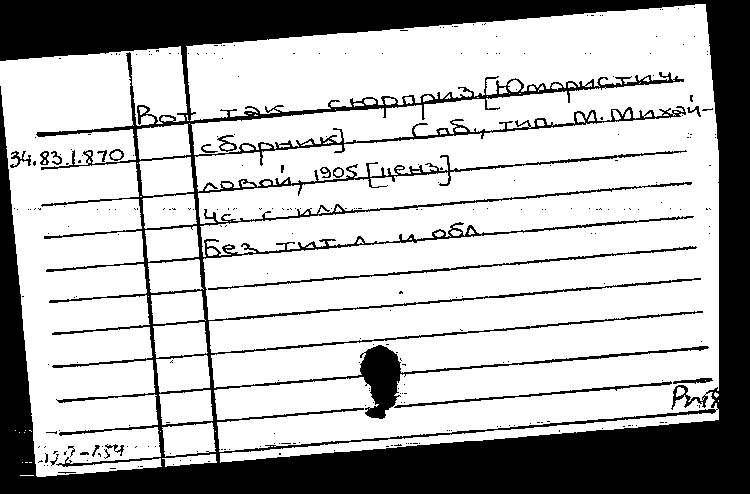 Вот так сюрприз. [Юмористич.
34.83.1.870 сборник]. Спб., тип. М. Михай-
ловой, 1905 [ценз.].
4с. с илл.
Без тит. л. и обл.